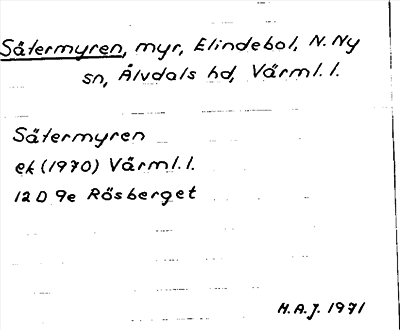 Sätermyren, myr, Elindebol, N. Ny
sn, Älvdals hd, Värml. l.
Sätermyren
ek (1970) Värml. l.
12 D 9e Rösberget
H.A.J. 1971